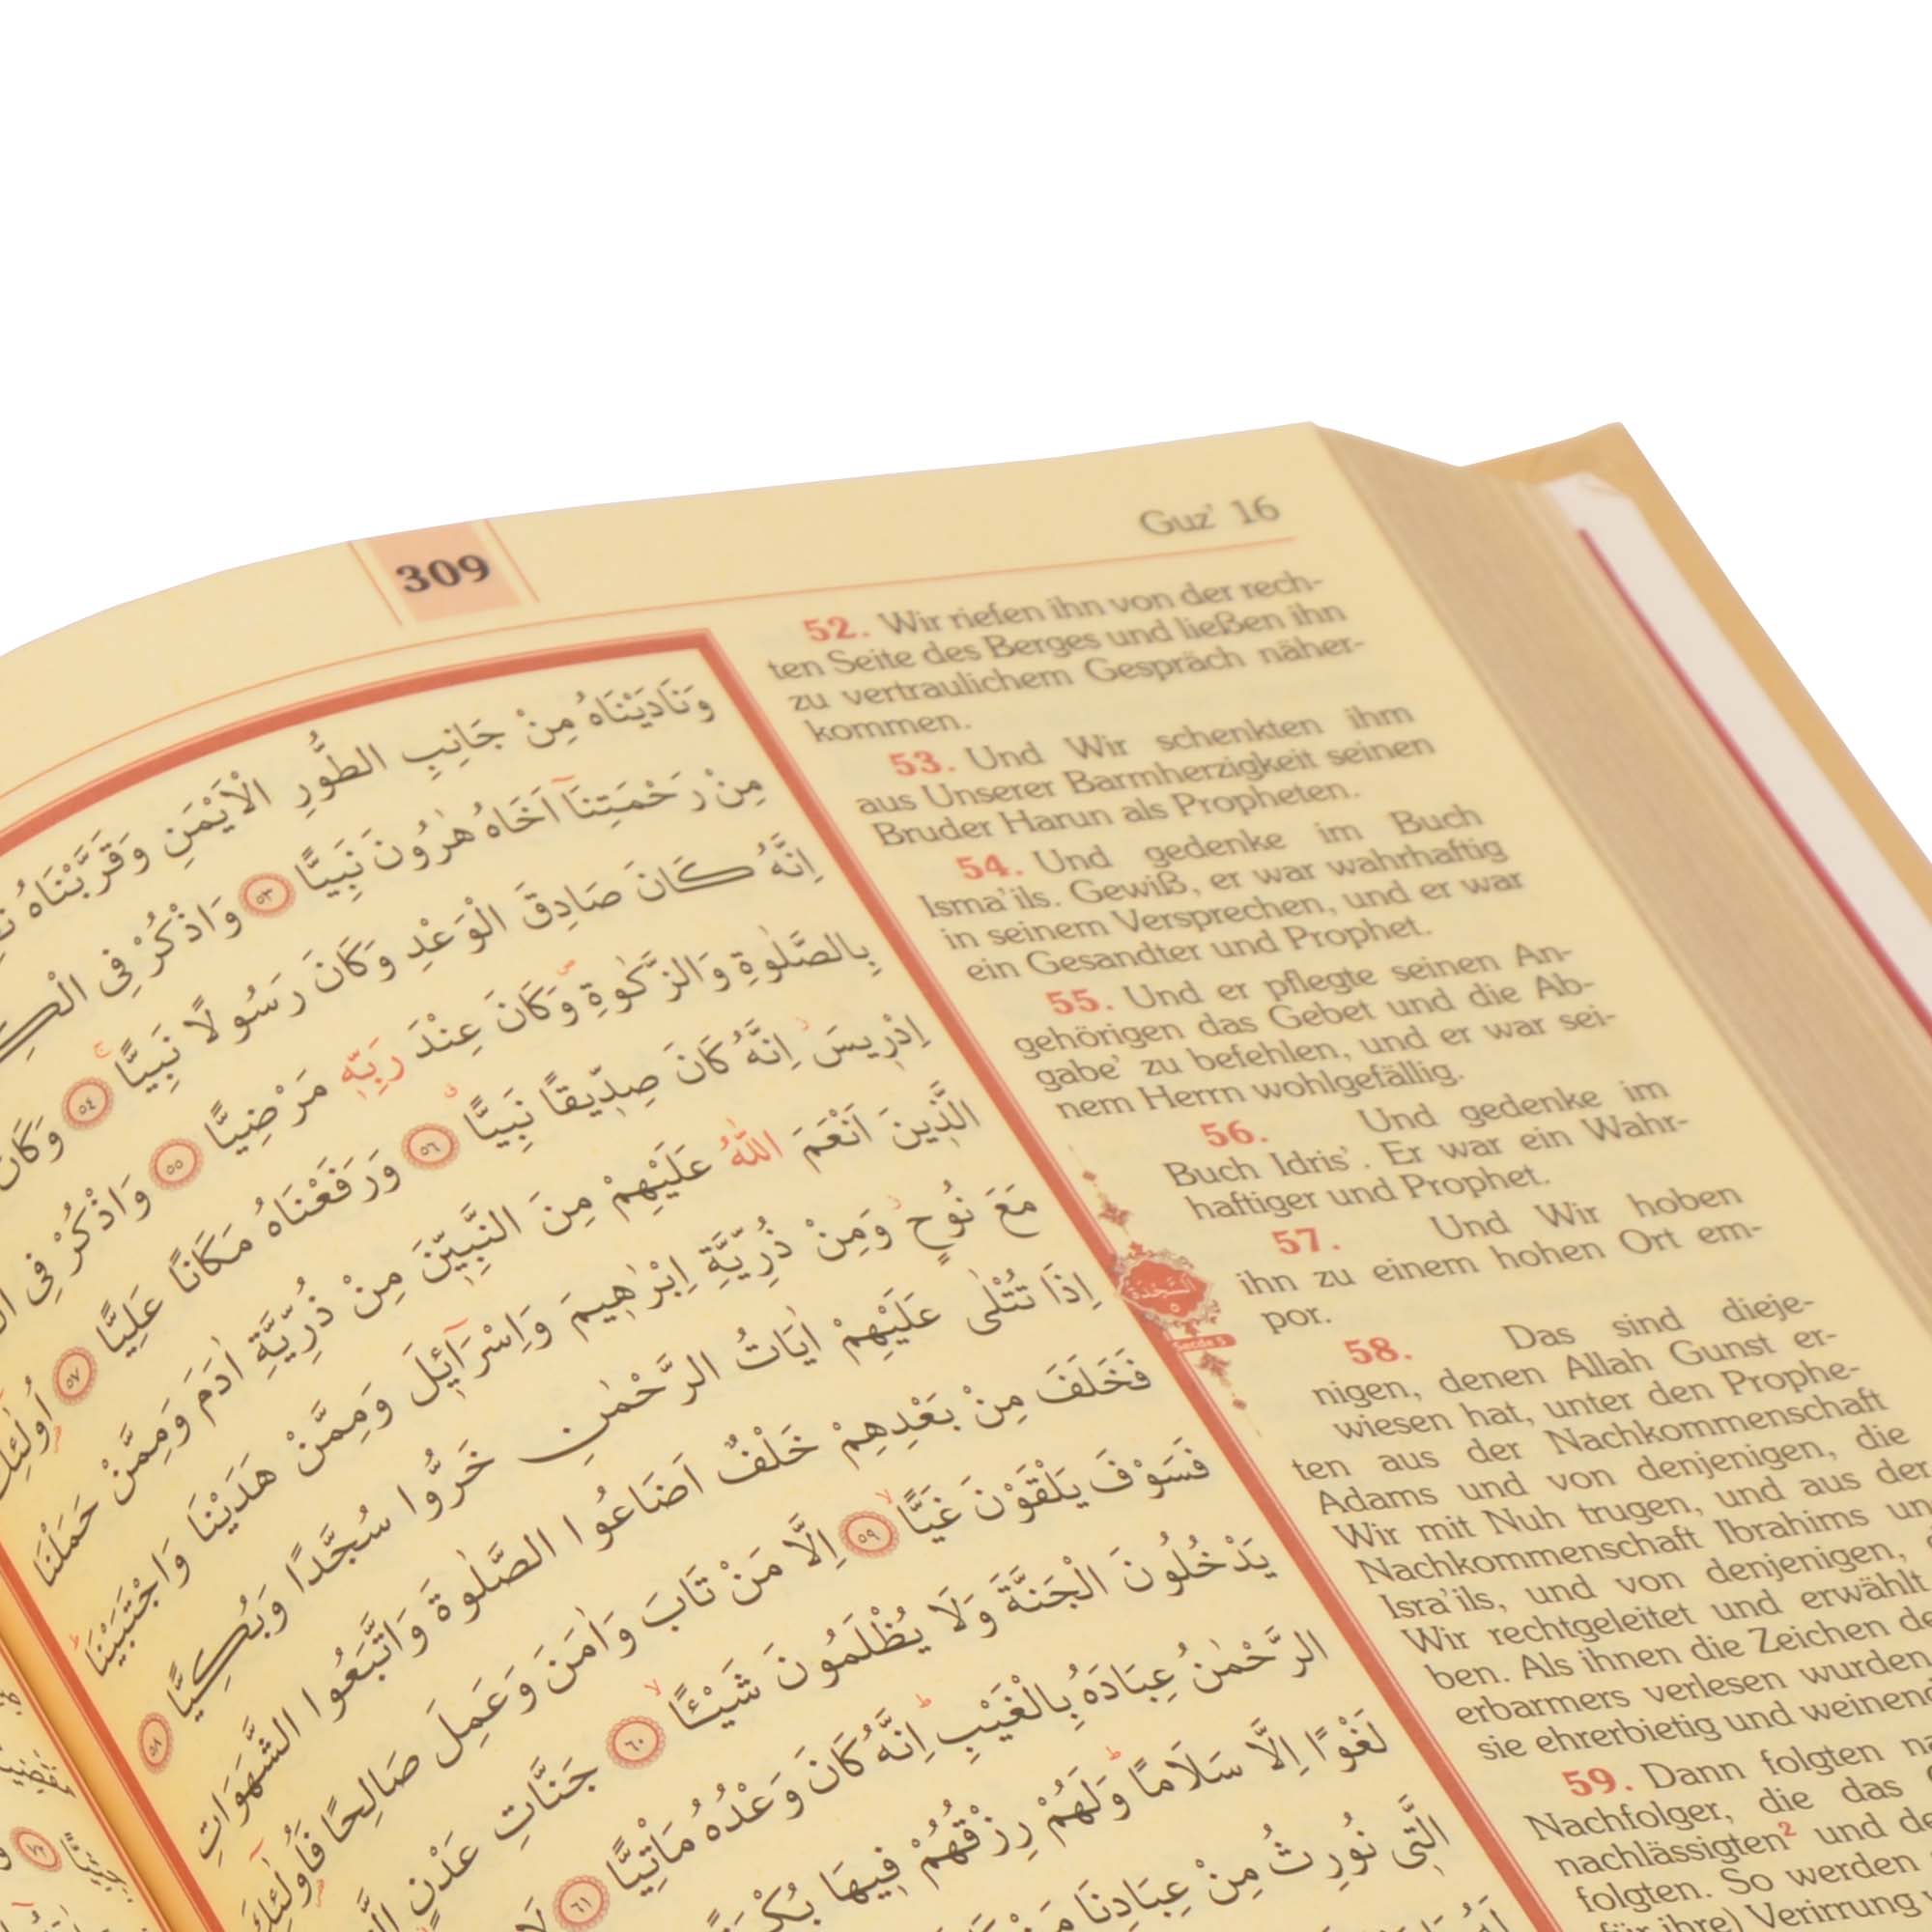 309
Guz' 16
وَنَادَيْنَاهُ مِنْ جَانِبِ الطُّورِ الْاَيْمَنِ وَقَرَّبْنَاهُ
مِنْ رَحْمَتِنَٓا اَخَاهُ هٰرُونَ نَبِيًّا ٥٣ وَاذْكُرْ فِى
اِنَّهُ كَانَ صَادِقَ الْوَعْدِ وَكَانَ رَسُولًا نَبِيًّا ٥٤ وَكَانَ
بِالصَّلٰوةِ وَالزَّكٰوةِ وَكَانَ عِنْدَ رَبِّهٖ مَرْضِيًّا ٥٥ وَاذْكُرْ فِى
اِدْرٖيسَ اِنَّهُ كَانَ صِدّٖيقًا نَبِيًّا ٥٦ وَرَفَعْنَاهُ مَكَانًا عَلِيًّا ٥٧
الَّذٖينَ اَنْعَمَ اللّٰهُ عَلَيْهِمْ مِنَ النَّبِيّٖنَ مِنْ ذُرِّيَّةِ اٰدَمَ وَمِمَّنْ حَمَلْنَا
مَعَ نُوحٍ وَمِنْ ذُرِّيَّةِ اِبْرٰهٖيمَ وَاِسْرَٓائٖلَ وَمِمَّنْ هَدَيْنَا وَاجْتَبَيْنَا
اِذَا تُتْلٰى عَلَيْهِمْ اٰيَاتُ الرَّحْمٰنِ خَرُّوا سُجَّدًا وَبُكِيًّا ٥٨
فَخَلَفَ مِنْ بَعْدِهِمْ خَلْفٌ اَضَاعُوا الصَّلٰوةَ وَاتَّبَعُوا الشَّهَوَاتِ
فَسَوْفَ يَلْقَوْنَ غَيًّا ٥٩ اِلَّا مَنْ تَابَ وَاٰمَنَ وَعَمِلَ صَالِحًا فَاُولٰٓئِكَ
يَدْخُلُونَ الْجَنَّةَ وَلَا يُظْلَمُونَ شَيْـًٔا ٦٠ جَنَّاتِ عَدْنٍ
الرَّحْمٰنُ عِبَادَهُ بِالْغَيْبِ اِنَّهُ كَانَ وَعْدُهُ مَاْتِيًّا ٦١
لَغْوًا اِلَّا سَلَامًا وَلَهُمْ رِزْقُهُمْ فٖيهَا
الَّتٖى نُورِثُ مِنْ عِبَادِنَا
52. Wir riefen ihn von der rech-
ten Seite des Berges und ließen ihn
zu vertraulichem Gespräch näher-
kommen.
53. Und Wir schenkten ihm
aus Unserer Barmherzigkeit seinen
Bruder Harun als Propheten.
54. Und gedenke im Buch
Isma'ils. Gewiß, er war wahrhaftig
in seinem Versprechen, und er war
ein Gesandter und Prophet.
55. Und er pflegte seinen An-
gehörigen das Gebet und die Ab-
gabe' zu befehlen, und er war sei-
nem Herrn wohlgefällig.
56. Und gedenke im
Buch Idris'. Er war ein Wahr-
haftiger und Prophet.
57. Und Wir hoben
ihn zu einem hohen Ort em-
por.
58. Das sind dieje-
nigen, denen Allah Gunst er-
wiesen hat, unter den Prophe-
ten aus der Nachkommenschaft
Adams und von denjenigen, die
Wir mit Nuh trugen, und aus der
Nachkommenschaft Ibrahims un
Isra'ils, und von denjenigen,
Wir rechtgeleitet und erwählt
ben. Als ihnen die Zeichen de
erbarmers verlesen wurden
sie ehrerbietig und weinend
59. Dann folgten na
Nachfolger, die das
nachlässigten² und de
folgten. So werden
für ihre) Verirrung
السَّجْدَة